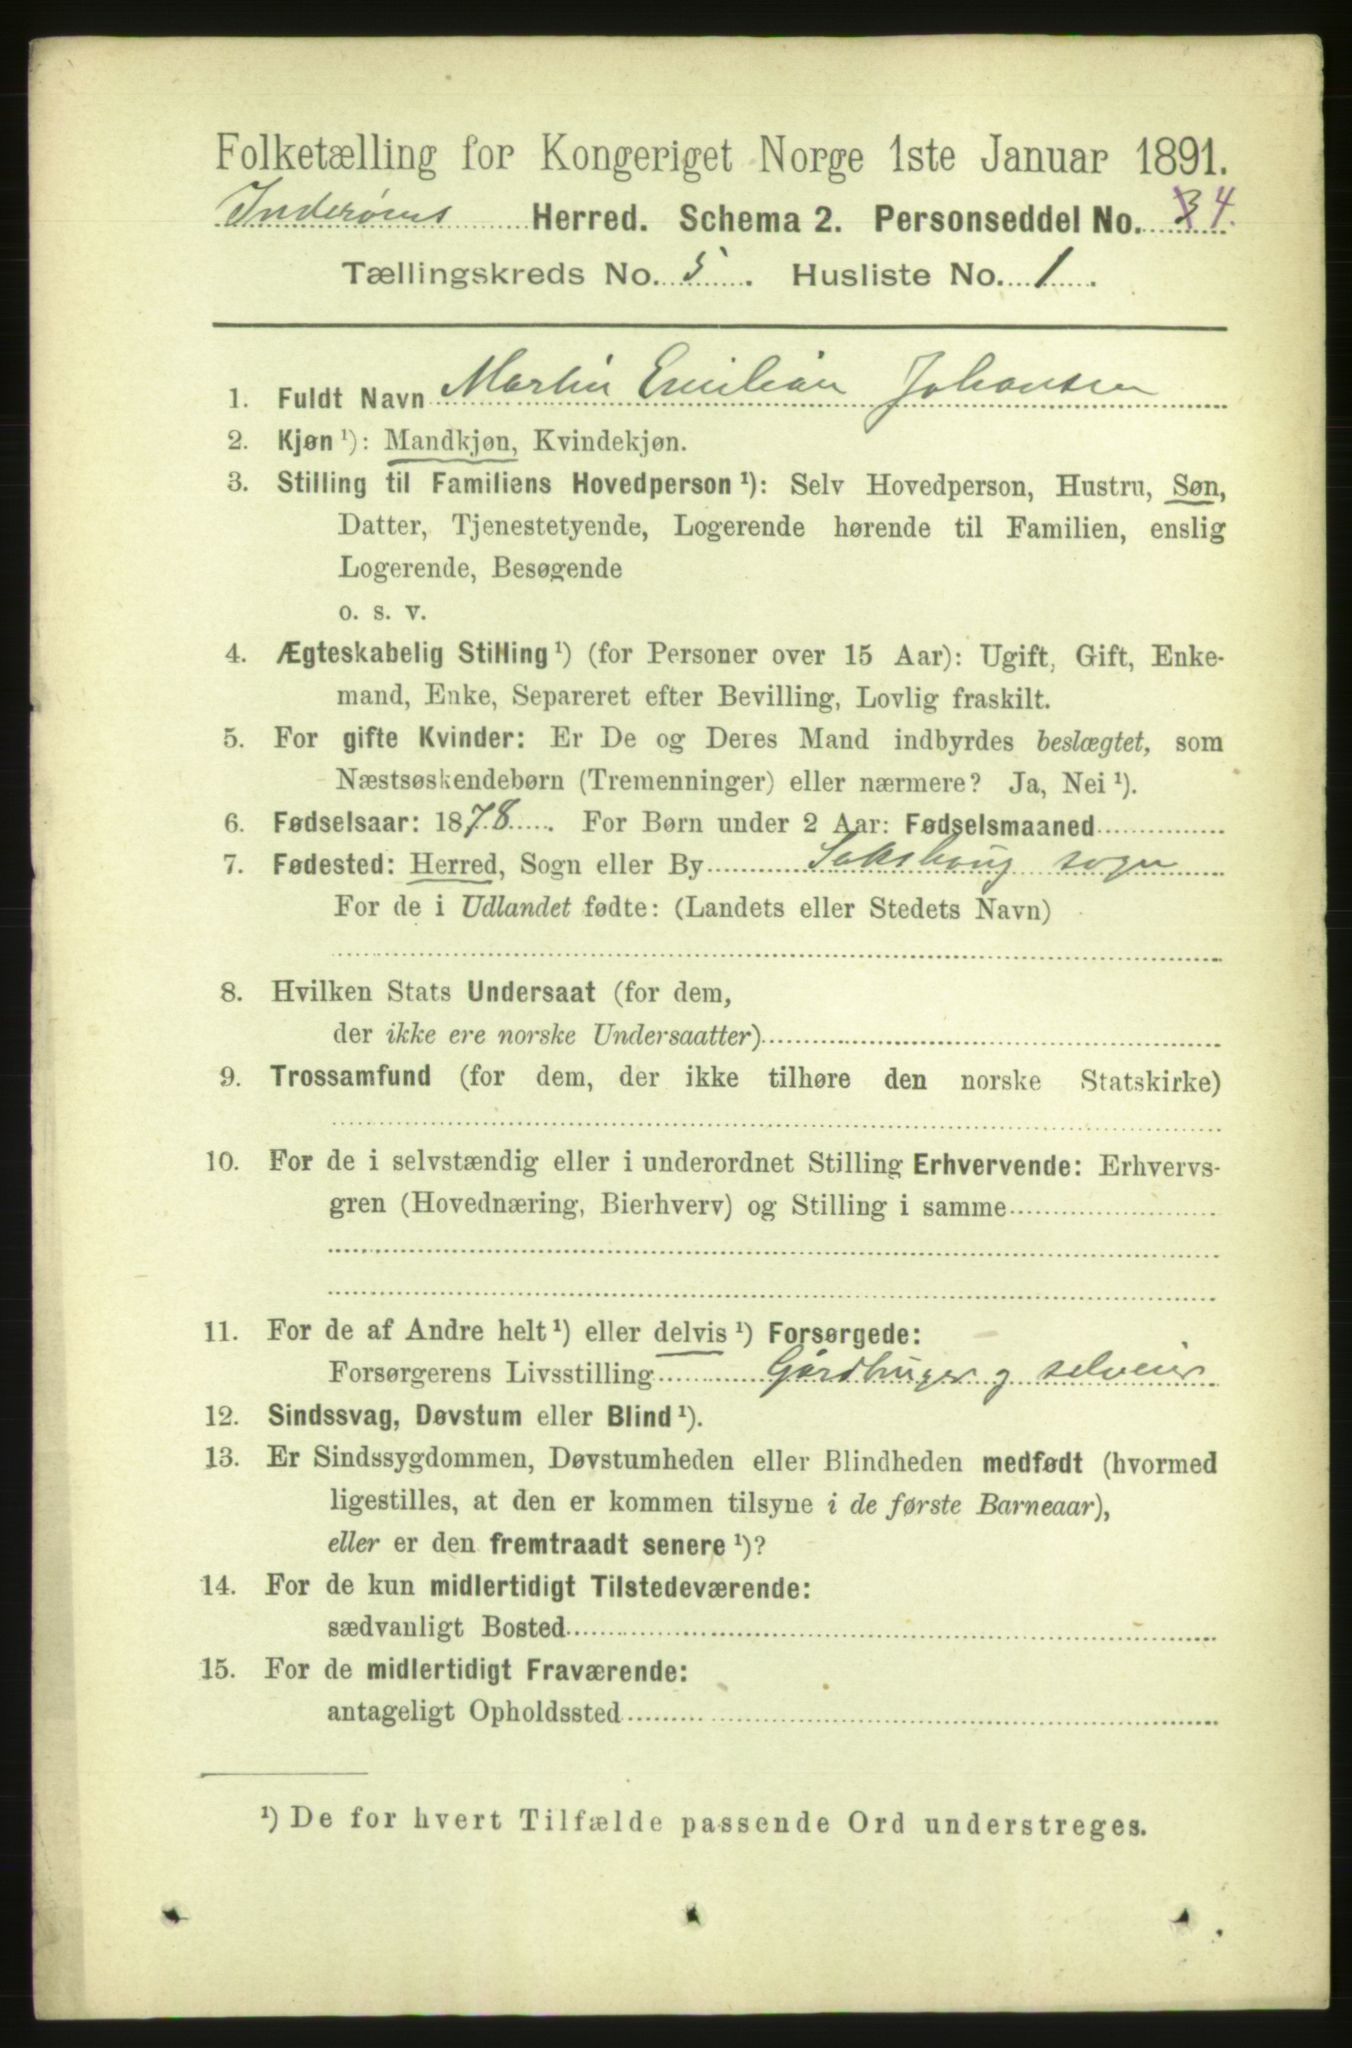 Folketælling for Kongeriget Norge 1ste Januar 1891.
Inderøens Herred. Schema 2. Personseddel No. 3 4.
Tællingskreds No. 5. Husliste No. 1.
1. Fuldt Navn Martin Emilian Johansen
2. Kjøn ¹): Mandkjøn, Kvindekjøn.
3. Stilling til Familiens Hovedperson ¹): Selv Hovedperson, Hustru, Søn,
Datter, Tjenestetyende, Logerende hørende til Familien, enslig
Logerende, Besøgende
o. s. v.
4. Ægteskabelig Stilling ¹) (for Personer over 15 Aar): Ugift, Gift, Enke-
mand, Enke, Separeret efter Bevilling, Lovlig fraskilt.
5. For gifte Kvinder: Er De og Deres Mand indbyrdes beslægtet, som
Næstsøskendebørn (Tremenninger) eller nærmere? Ja, Nei ¹).
6. Fødselsaar: 1878. For Børn under 2 Aar: Fødselsmaaned
7. Fødested: Herred, Sogn eller By Sakshaug sogn
For de i Udlandet fødte: (Landets eller Stedets Navn)
8. Hvilken Stats Undersaat (for dem,
der ikke ere norske Undersaatter)
9. Trossamfund (for dem, der ikke tilhøre den norske Statskirke)
10. For de i selvstændig eller i underordnet Stilling Erhvervende: Erhvervs-
gren (Hovednæring, Bierhverv) og Stilling i samme
11. For de af Andre helt ¹) eller delvis ¹) Forsørgede:
Forsørgerens Livsstilling Gårdbruger g selveier
12. Sindssvag, Døvstum eller Blind ¹).
13. Er Sindssygdommen, Døvstumheden eller Blindheden medfødt (hvormed
ligestilles, at den er kommen tilsyne i de første Barneaar),
eller er den fremtraadt senere ¹)?
14. For de kun midlertidigt Tilstedeværende:
sædvanligt Bosted
15. For de midlertidigt Fraværende:
antageligt Opholdssted
¹) De for hvert Tilfælde passende Ord understreges.